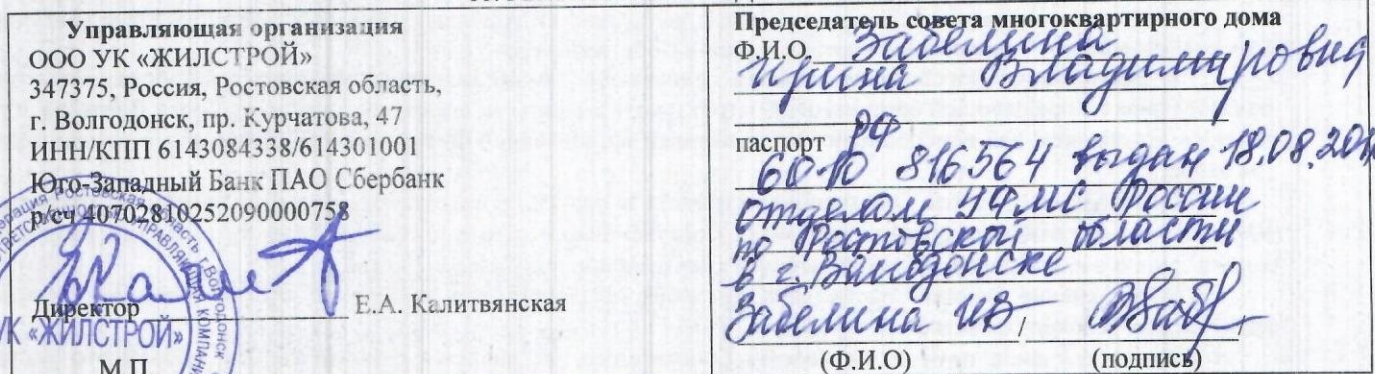 Управляющая организация
ООО УК «ЖИЛСТРОЙ»
347375, Россия, Ростовская область,
г. Волгодонск, пр. Курчатова, 47
ИНН/КПП 6143084338/614301001
Юго-Западный Банк ПАО Сбербанк
р/сч 40702810252090000758
Директор Е.А. Калитвянская
УК «ЖИЛСТРОЙ»
М.П.
Председатель совета многоквартирного дома
Ф.И.О. Забелина
Ирина Владимировна
паспорт РФ
60-10 816564 выдан 18.08.20
отделом УФМС России
по Ростовской области
в г. Волгодонске
Забелина ИВ.
(Ф.И.О) (подпись)